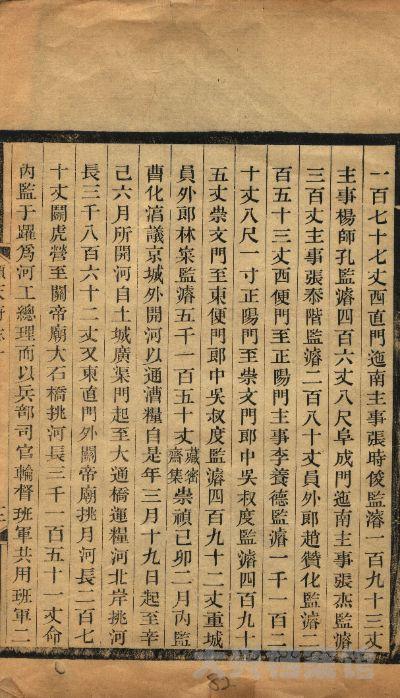 一百七十七丈西直門迤南主事張時俊監濬一百九十三丈
主事楊師孔監濬四百六丈八尺阜成門迤南主事張杰監濬
三百丈主事張泰階監濬二百八十丈員外郎趙贊化監濬二
百五十三丈西便門至正陽門主事李養德監濬一千一百二
十丈八尺一寸正陽門至崇文門郎中吳叔度監濬四百九十
五丈崇文門至東便門郎中吳叔度監濬四百九十二丈重城
員外郎林寀監濬五千一百五十丈藏密齋集崇禎己卯二月內監
曹化淳議京城外開河以通漕糧自是年三月十九日起至辛
己六月所開河自土城廣渠門起至大通橋運糧河北岸挑河
長三千八百六十二丈又東直門外關帝廟挑月河長二百七
十丈鬭虎營至關帝廟大石橋挑河長三千一百五十一丈命
內監于躍為河工總理而以兵部司官輪督班軍共用班軍二